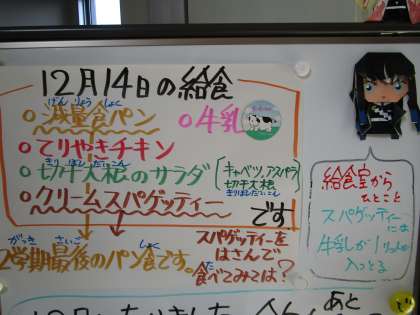 12月14日の給食
げん りょう しょく
○減量食パン
○牛乳
○てりやきチキン
きり ぼし だいこん
○切干大根のサラダ
キャベツ、アスパラ
切干大根
きりぼしだいこん
○クリームスパゲッティー
です
がっき さいご しょく
2学期最後のパン食です。
スパゲッティーを
はさんで
た
食べてみては?
給食室から
ひとこと
スパゲッティー
には
牛乳が
入っとる
あと